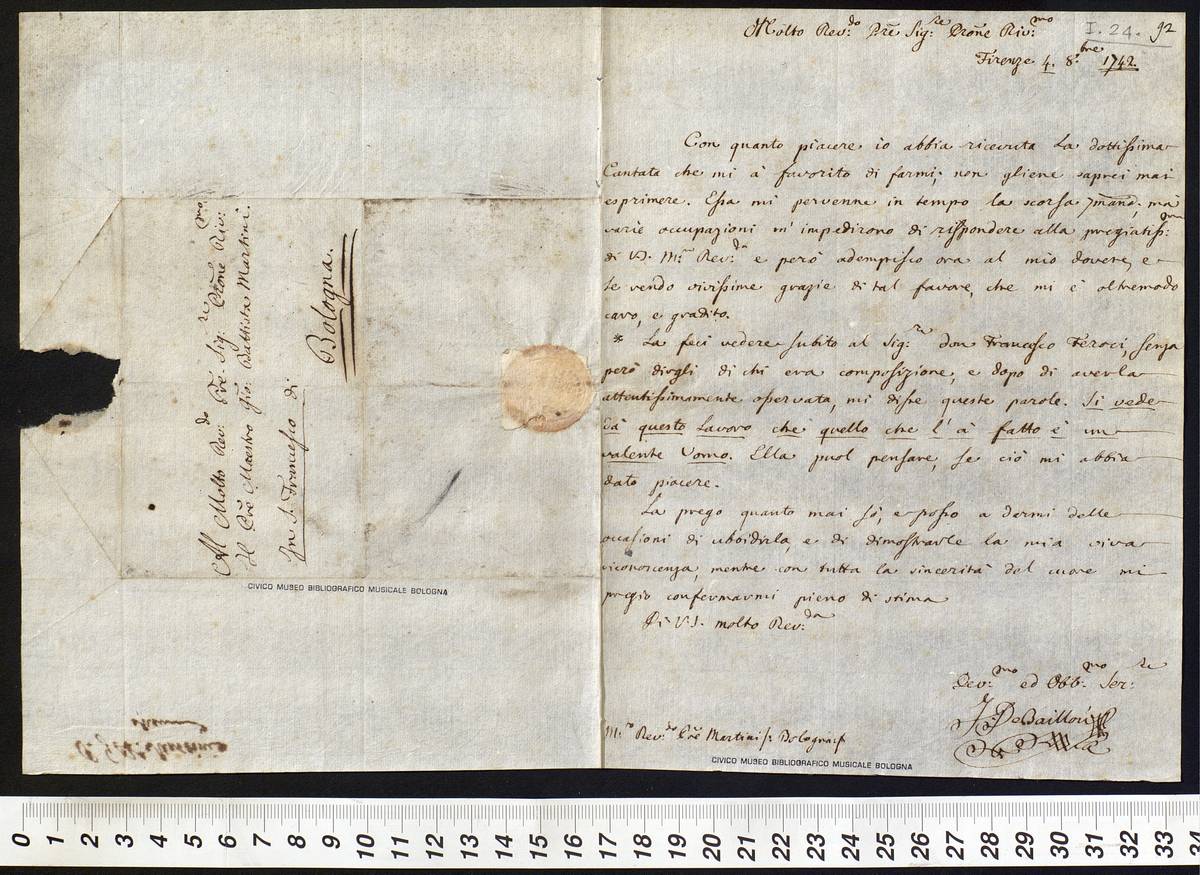 Al Molto Rev:do Pre Sig:re Prone Riv:mo
Il Pre Maestro Gio: Battista Martini.
In S. Francesco di
Bologna.
CIVICO MUSEO BIBLIOGRAFICO MUSICALE BOLOGNA
I. 24. 92
Molto Rev:do Pre Sig:re Prone Riv:mo
Firenze 4. 8:bre 1742.
Con quanto piacere io abbia ricevuta la dottissima
Cantata che mi à favorito di farmi; non gliene saprei mai
esprimere. Essa mi pervenne in tempo la scorsa 7mana, mà
varie occupazioni m'impedirono di rispondere alla pregiatiss:ma
di V.S. M:to Rev:da e però adempisco ora al mio dovere, e
le rendo vivissime grazie di tal favore, che mi è oltremodo
caro, e gradito.
* La feci vedere subito al Sig:re don Francesco Feroci, senza
però dirgli di chi era composizione, e dopo di averla
attentissimamente osservata, mi disse queste parole. Si vede
dà questo Lavoro che quello che l'à fatto è un
valente Uomo. Ella puol pensare, se ciò mi abbia
dato piacere.
La prego quanto mai sò, e posso a darmi delle
occasioni di ubbidirla, e di dimostrarle la mia viva
riconoscenza, mentre con tutta la sincerità del cuore mi
pregio confermarmi pieno di stima
Di V.S. molto Rev:da
Dev:mo ed Obb:mo Ser:re
J: DeBaillou
M:to Rev:do Pre Martini /: Bologna :/
CIVICO MUSEO BIBLIOGRAFICO MUSICALE BOLOGNA
0 1 2 3 4 5 6 7 8 9 10 11 12 13 14 15 16 17 18 19 20 21 22 23 24 25 26 27 28 29 30 31 32 33 34